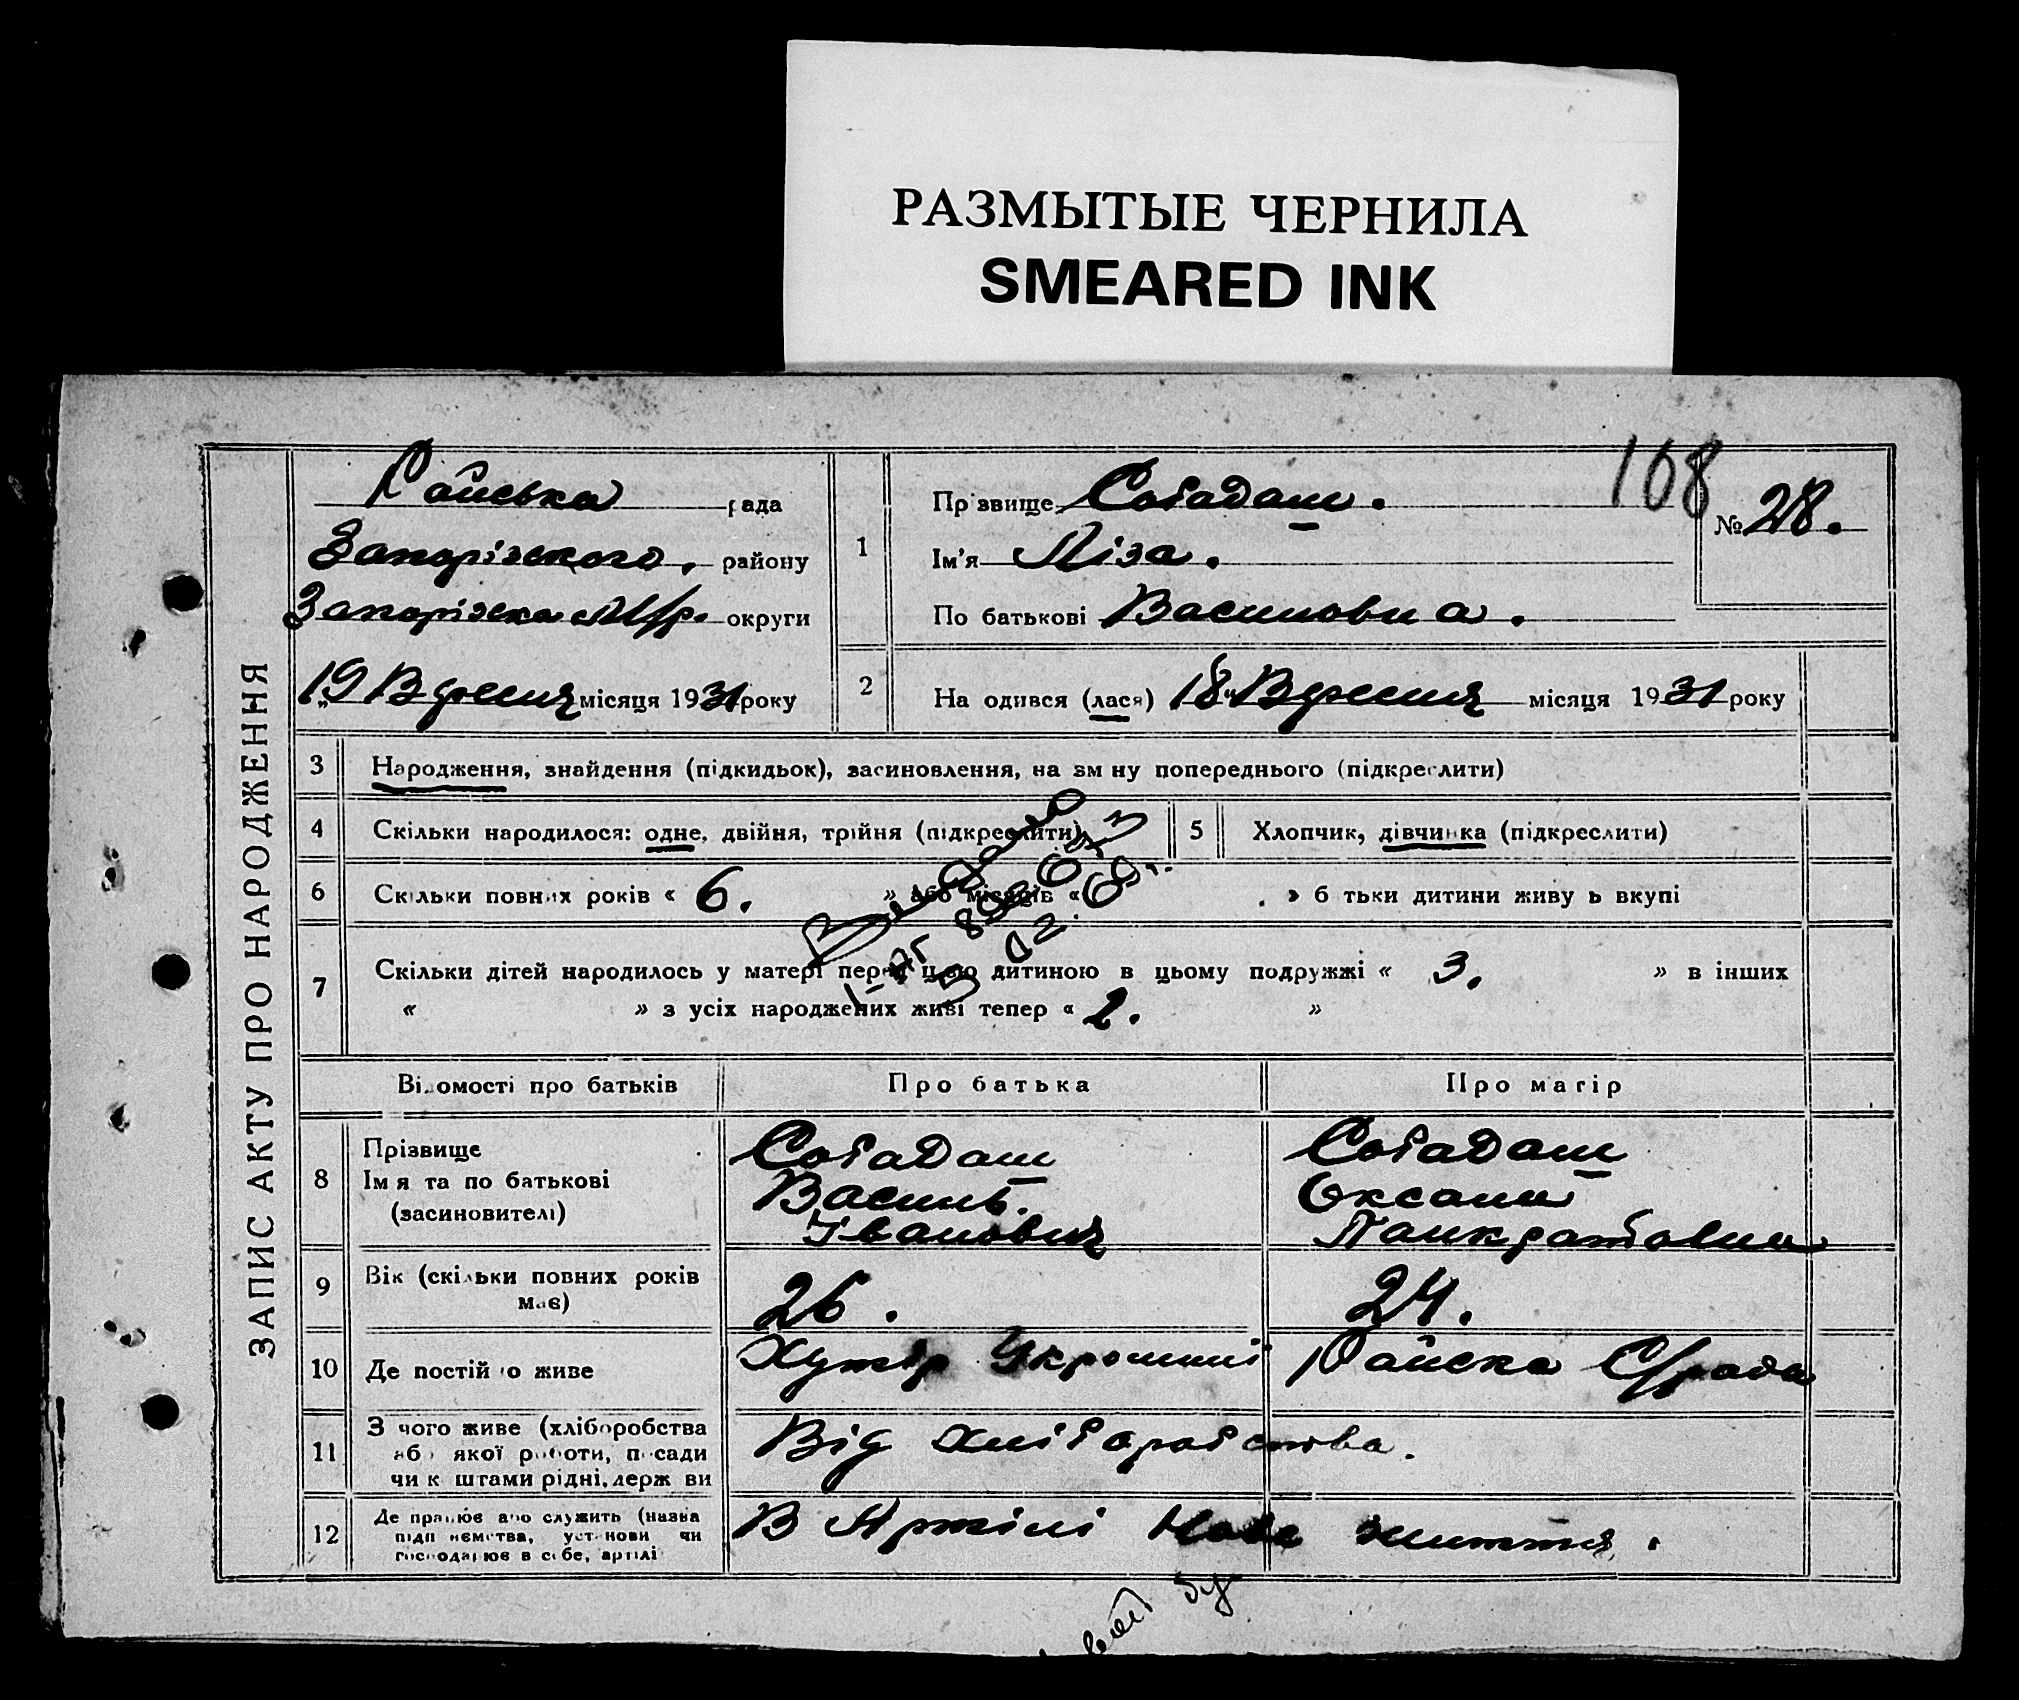 РАЗМЫТЫЕ ЧЕРНИЛА
SMEARED INK
168
ЗАПИС АКТУ ПРО НАРОДЖЕННЯ
Райська рада
Запорізского, району
Запорізска М/р. округи
19 Вресния місяця 1931 року
1
Прізвище Собадаш.
Ім'я Ліза.
По батькові Василовна.
№ 28.
2
На одився (лася) 18 Вресния місяця 1931 року
3 Народження, знайдення (підкидьок), засиновлення, на зм ну попереднього (підкреслити)
4 Скільки народилося: одне, двійня, трійня (підкреслити)
5 Хлопчик, дівчинка (підкреслити)
6 Скільки повних років « 6. » або місяців « » б тьки дитини живу ь вкупі
7 Скільки дітей народилось у матері перед цею дитиною в цьому подружжі « 3. » в інших
« » з усіх народжених живі тепер « 2. »
Відомості про батьків Про батька Про матір
8 Прізвище
Ім я та по батькові
(засиновителі)
Собадаш
Василь.
Іванович
Собадаш
Оксана
Панкратовна
9 Вік (скільки повних років
має)
26. 24.
10 Де постійно живе Хутір Украиний Райска С/рада
11 З чого живе (хліборобства
або якої роботи, посади
чи к штами рідні, держ ви
Від хліборобства.
12 Де працює або служить (назва
підп иємства, установи чи
господарює в себе, артілі
В Артілі Нове життя.